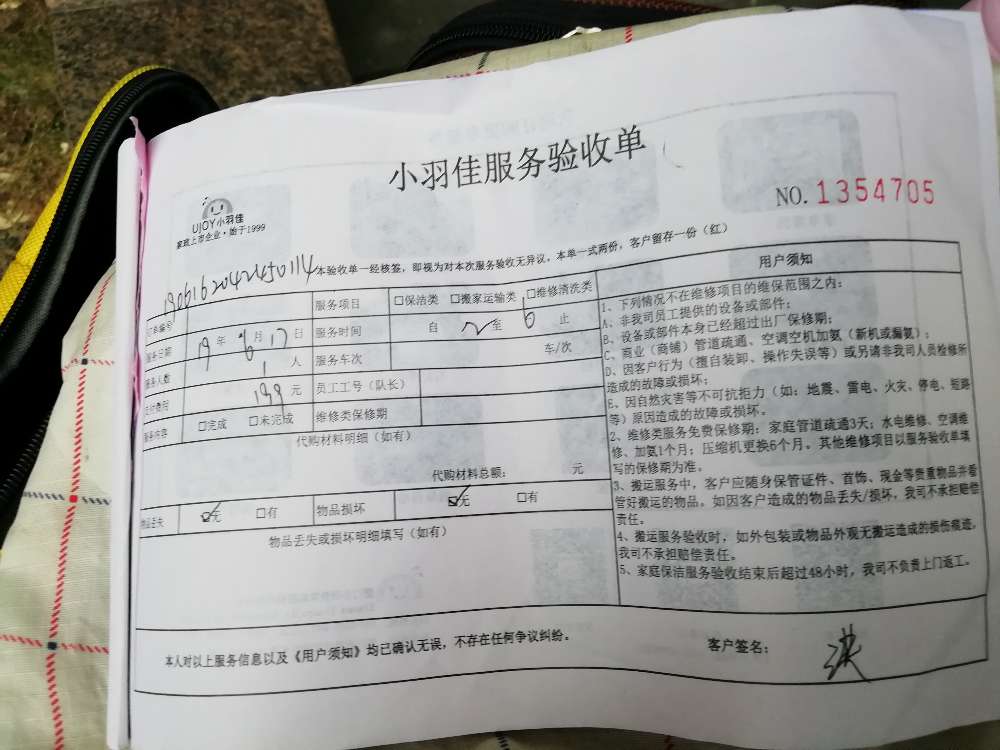 小羽佳服务验收单
NO.1354705
UJOY小羽佳
家政上市企业·始于1999
本验收单一经核签,即视为对本次服务验收无异议。本单一式两份,客户留存一份(红)
订单编号 1906162042450114
服务项目 □保洁类 □搬家运输类 □维修清洗类
服务日期 19年6月17日 服务时间 自 2 至 6 止
服务人数 1人 服务车次 车/次
支付费用 199元 员工工号(队长)
服务内容 □完成 □未完成 维修类保修期
代购材料明细(如有)
代购材料总额: 元
物品丢失 ☑无 □有 物品损坏 ☑无 □有
物品丢失或损坏明细填写(如有)
用户须知
1、下列情况不在维修项目的维保范围之内:
A、非我司员工提供的设备或部件;
B、设备或部件本身已经超过出厂保修期;
C、商业(商铺)管道疏通、空调空机加氨(新机或漏氨);
D、因客户行为(擅自装卸、操作失误等)或另请非我司人员检修所
造成的故障或损坏;
E、因自然灾害等不可抗拒力(如:地震、雷电、火灾、停电、短路
等)原因造成的故障或损坏。
2、维修类服务免费保修期:家庭管道疏通3天;水电维修、空调维
修、加氨1个月;压缩机更换6个月。其他维修项目以服务验收单填
写的保修期为准。
3、搬运服务中,客户应随身保管证件、首饰、现金等贵重物品并看
管好搬运的物品。如因客户造成的物品丢失/损坏,我司不承担赔偿
责任。
4、搬运服务验收时,如外包装或物品外观无搬运造成的损伤痕迹,
我司不承担赔偿责任。
5、家庭保洁服务验收结束后超过48小时,我司不负责上门返工。
本人对以上服务信息以及《用户须知》均已确认无误,不存在任何争议纠纷。
客户签名: 洪